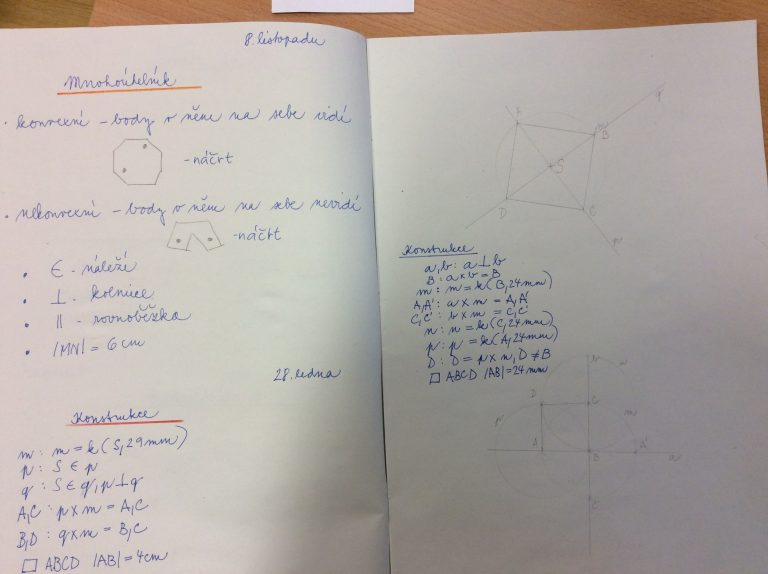 8. listopadu
Mnohoúhelník
• konvexní – body v něm na sebe vidí
- náčrt
• nekonvexní – body v něm na sebe nevidí
- náčrt
• ∈ - náleží
• ⊥ - kolmice
• || - rovnoběžka
• |MN| = 6 cm
28. ledna
Konstrukce
m : m = k (S, 29 mm)
p : S ∈ p
q : S ∈ q, p ⊥ q
A, C : p × m = A, C
B, D : q × m = B, C
□ ABCD |AB| = 4cm
q
A
m
B
S
D
C
p
Konstrukce
a, b : a ⊥ b
B : a × b = B
m : m = k (B, 24 mm)
A, A' : a × m = A, A'
C, C' : b × m = C, C'
n : n = k (C, 24 mm)
p : p = k (A, 24 mm)
D : D = p × n, D ≠ B
□ ABCD |AB| = 24 mm
b
n
D
C
p
m
A
B
A'
a
C'